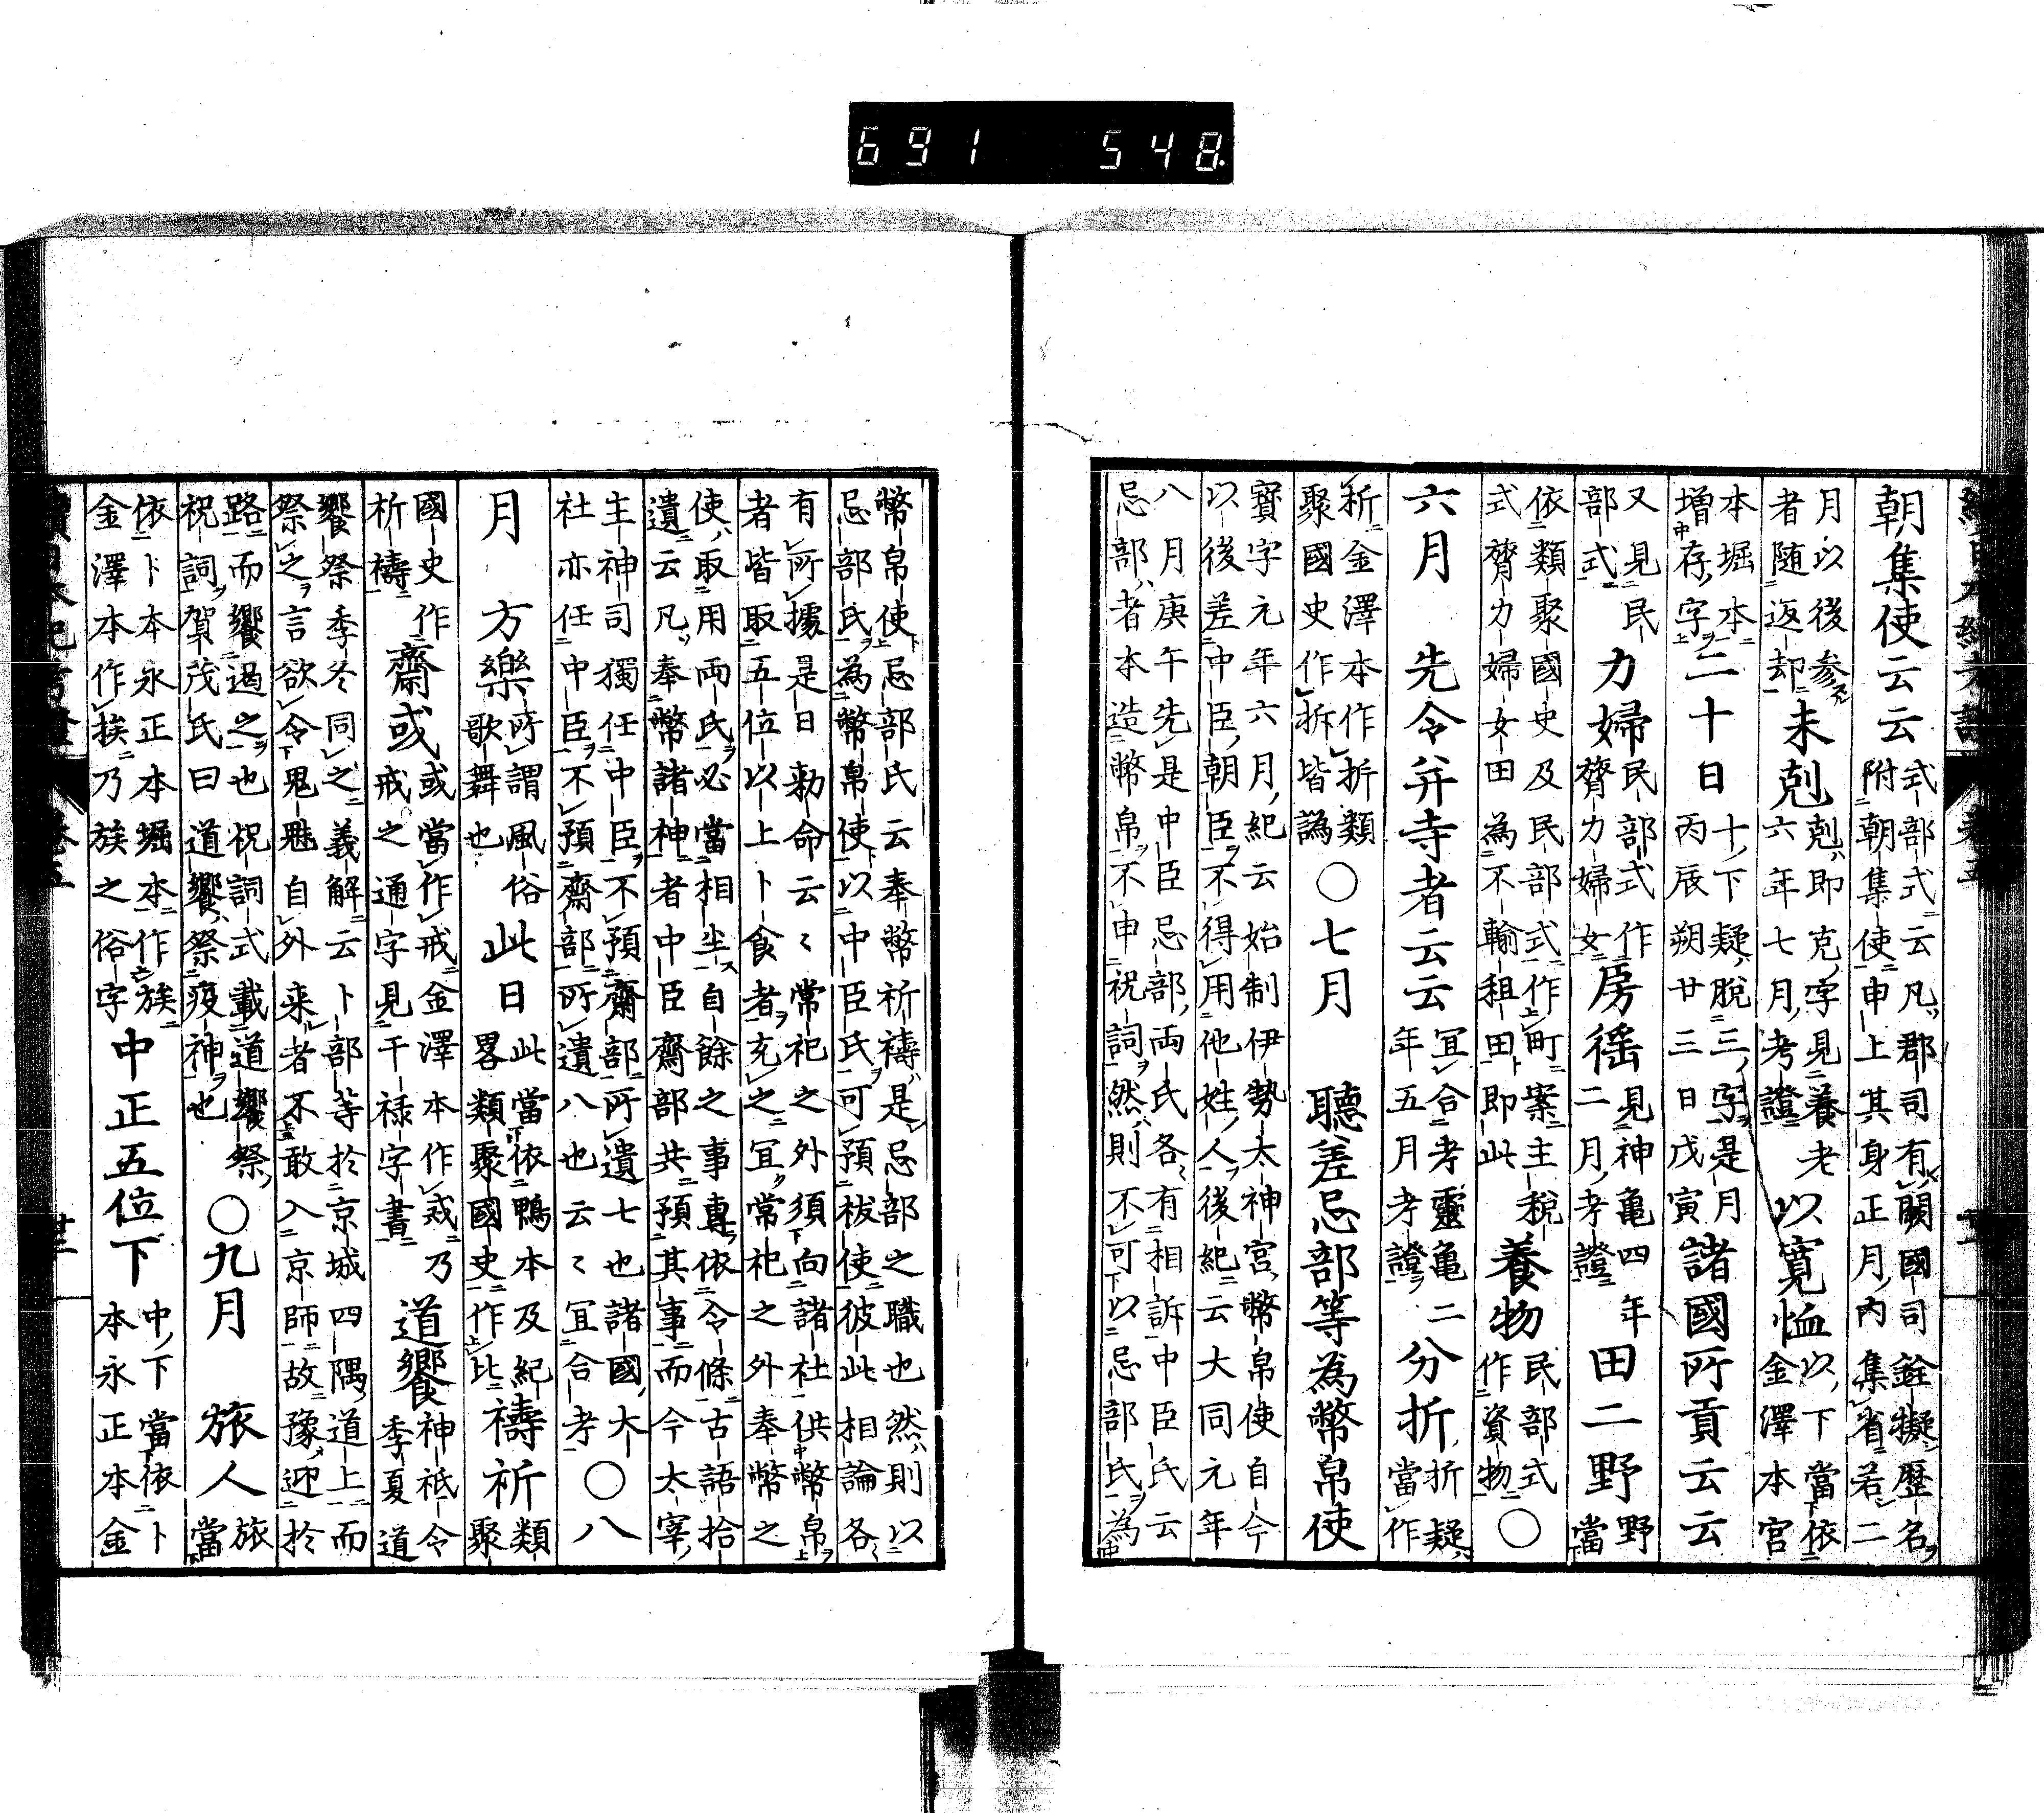 691 548
朝集使云云 式部式云凡郡司有闕國司銓擬歷名
附朝集使申上其身正月内集省若二
月以後参
者随返却 未剋 剋即克字見養老
六年七月考證 以寛恤 以下當依
金澤本宮
本堀本
増存字 二十日 十下疑脱三字是月
丙辰朔廿三日戊寅 諸國所貢云云
又見民
部式 力婦 民部式作
齎力婦女 房徭 見神亀四年
二月考證 田二野 野
當
依類聚國史及民部式作町案主税
式齎力婦女田為不輸租田即此 養物 民部式
作資物 〇
六月 先令并寺者云云 冝合考靈亀二
年五月考證 分折 折疑
當作
析金澤本作折類
聚國史作拆皆譌 〇七月 聽差忌部等為幣帛使
寳字元年六月紀云始制伊勢太神宮幣帛使自今
以後差中臣朝臣不得用他姓人後紀云大同元年
八月庚午先是中臣忌部両氏各有相訴中臣氏云
忌部者本造幣帛不申祝詞然則不可以忌部氏為
幣帛使忌部氏云奉幣祈禱是忌部之職也然則以
忌部氏為幣帛使以中臣氏可預祓使彼此相論各
有所據是日勅命云々常祀之外須向諸社供幣帛
者皆取五位以上卜食者充之冝常祀之外奉幣之
使取用両氏必當相坐自餘之事專依令條古語拾
遺云凡奉幣諸神者中臣齋部共預其事而今太宰
主神司獨任中臣不預齋部所遺七也諸國大
社亦任中臣不預齋部所遺八也云々冝合考 〇八
月 方樂 所謂風俗
歌舞也 此日 此當依鴨本及紀
畧類聚國史作比 禱祈 類
聚
國史作
析禱 齋或 或當作戒金澤本作戎乃
戒之通字見干禄字書 道饗 神祇令
季夏道
饗祭季冬同之義解云卜部等於京城四隅道上而
祭之言欲令鬼魅自外来者不敢入京師故豫迎於
路而饗過之也祝詞式載道饗祭
祝詞賀茂氏曰道饗祭疫神也 〇九月 旅人 旅
當
依卜本永正本堀本作族
金澤本作挨乃族之俗字 中正五位下 中下當依卜
本永正本金